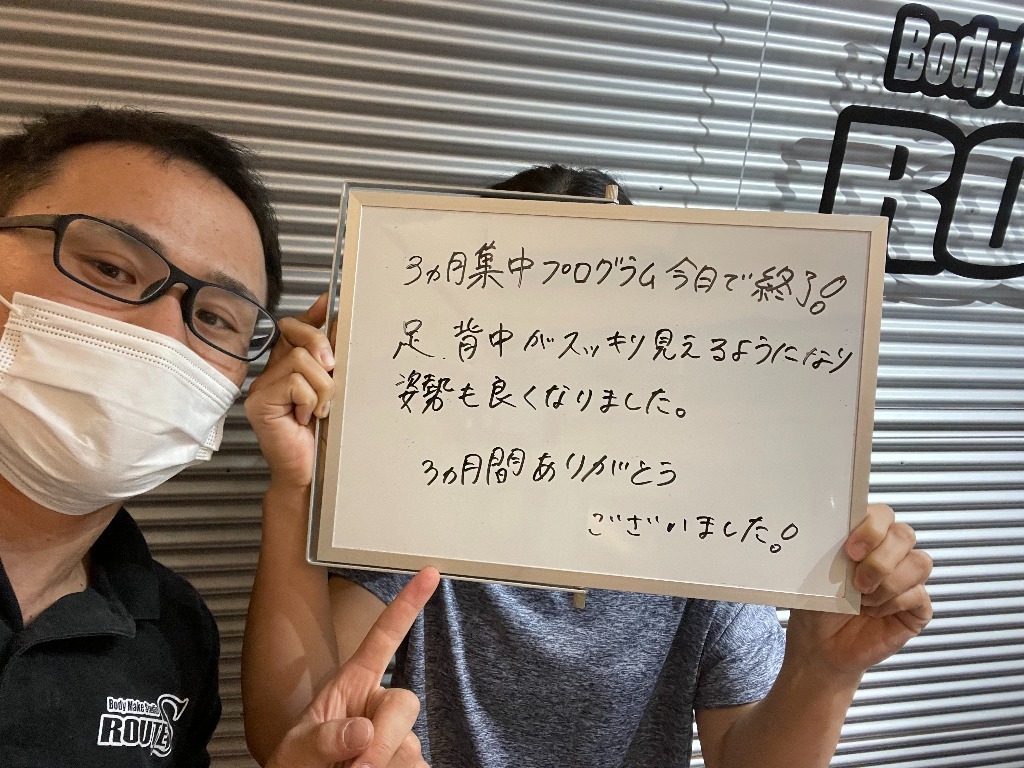 Body M
RO
3ヵ月集中プログラム今日で終了!
足、背中がスッキリ見えるようになり
姿勢も良くなりました。
3ヵ月間ありがとう
ございました!
Body Make Studio
ROUTE S